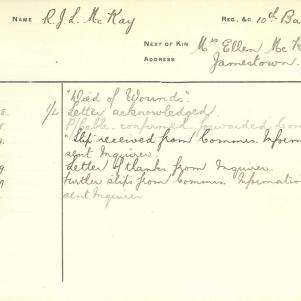 NAME R.J.L. McKay REG., &C. 10th Ba
NEXT OF KIN Mrs Ellen McK
ADDRESS Jamestown.
"Died of Wounds".
8. 1/L Letter acknowledged.
8. confirmed, forwarded Com
9. "Slip received from Commrs. Informa
sent Inquirer.
9. Letter of thanks from Inquirer.
9 Further slips from Commrs. Information
sent Inquirer